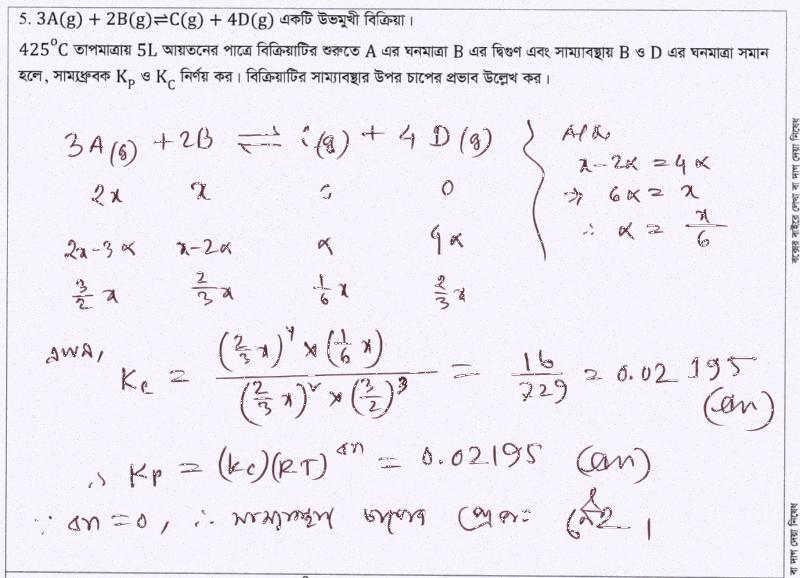 5. 3A(g) + 2B(g)⇌C(g) + 4D(g) একটি উভমুখী বিক্রিয়া।
425°C তাপমাত্রায় 5L আয়তনের পাত্রে বিক্রিয়াটির শুরুতে A এর ঘনমাত্রা B এর দ্বিগুণ এবং সাম্যাবস্থায় B ও D এর ঘনমাত্রা সমান
হলে, সাম্যধ্রুবক Kp ও KC নির্ণয় কর। বিক্রিয়াটির সাম্যাবস্থার উপর চাপের প্রভাব উল্লেখ কর।
3A(g) + 2B ⇌ C(g) + 4 D(g)
2x x 0 0
2x-3α x-2α α 4α
3/2 x 2/3 x 1/6 x 2/3 x
x-2α = 4α
⇒ 6α = x
∴ α = x/6
এখন, Kc = (2/3 x)^4 × (1/6 x) / (2/3 x)^2 × (3/2)^3 = 16/729 = 0.02195 (Ans)
∴ Kp = (Kc)(RT)^Δn = 0.02195 (Ans)
∵ Δn = 0, ∴ সাম্যাবস্থায় চাপের প্রভাব নেই।
বক্সের বাইরে লেখা বা দাগ দেয়া নিষেধ
বা দাগ দেয়া নিষেধ